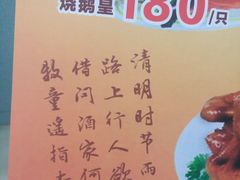 烧鹅皇180/只
清明时节雨
路上行人欲
借问酒家何
牧童遥指